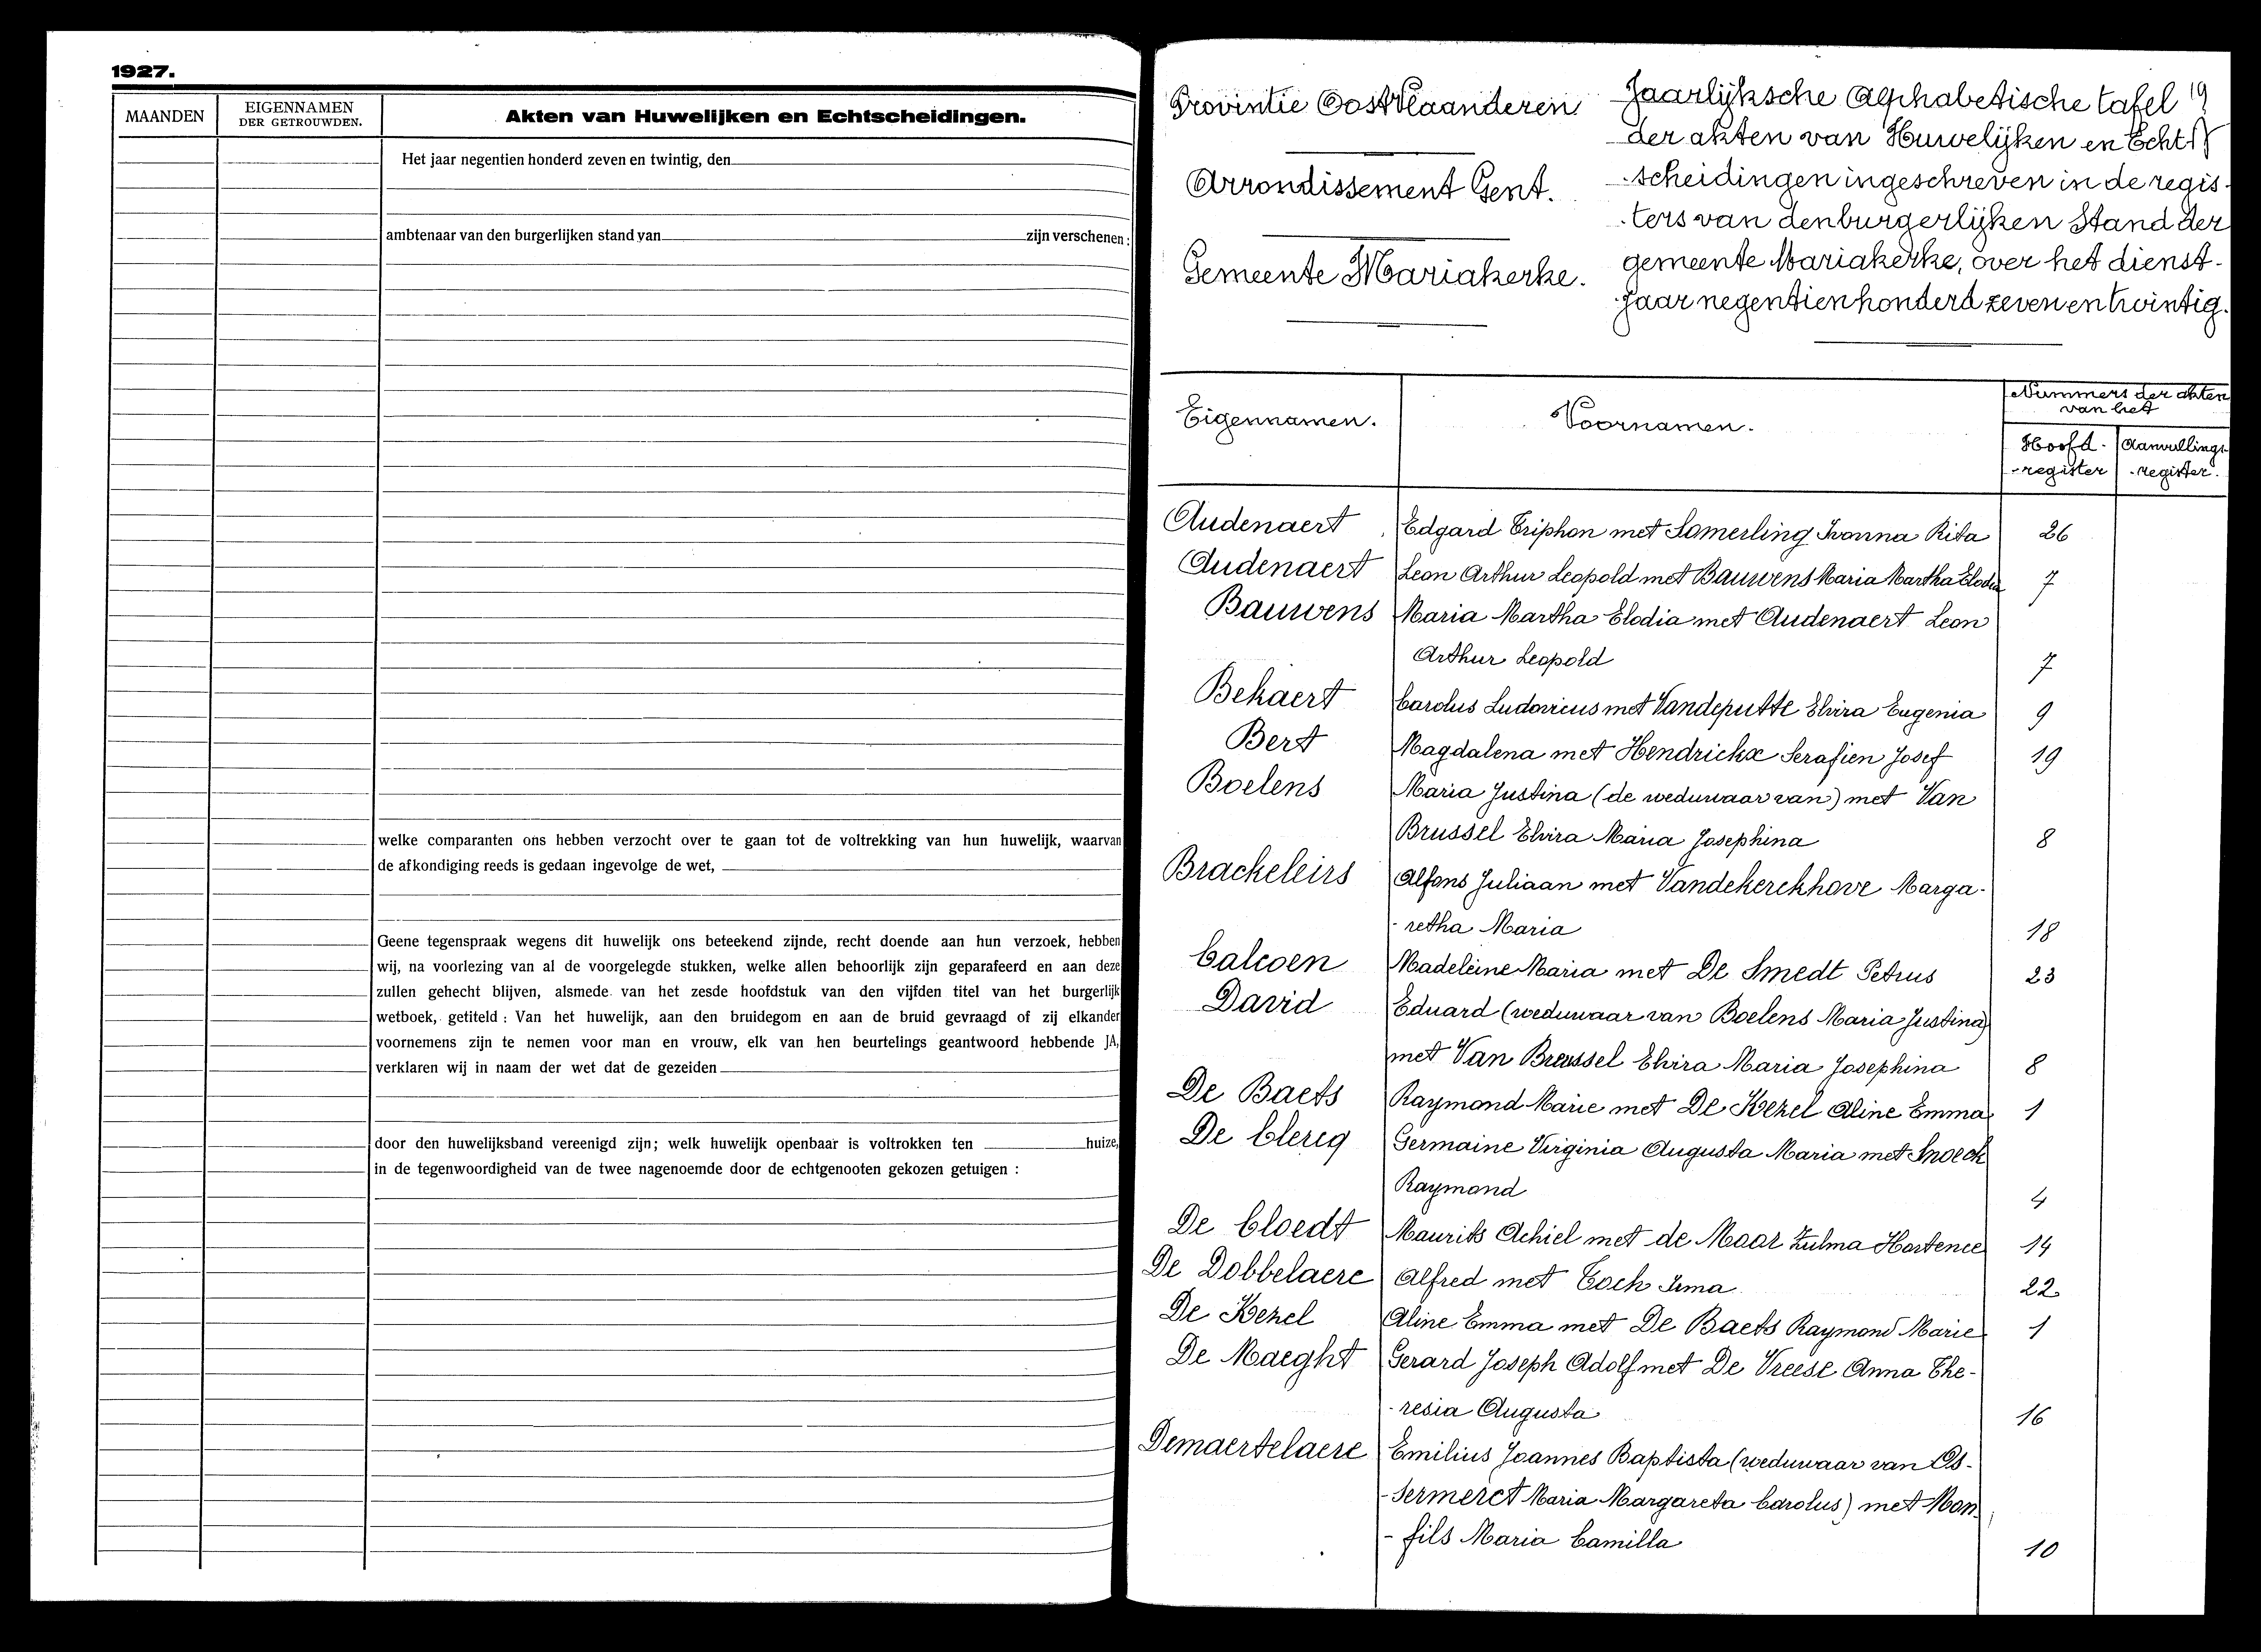 1927.
MAANDEN
EIGENNAMEN
DER GETROUWDEN.
Akten van Huwelijken en Echtscheidingen.
Het jaar negentien honderd zeven en twintig, den
ambtenaar van den burgerlijken stand van zijn verschenen :
welke comparanten ons hebben verzocht over te gaan tot de voltrekking van hun huwelijk, waarvan
de afkondiging reeds is gedaan ingevolge de wet,
Geene tegenspraak wegens dit huwelijk ons beteekend zijnde, recht doende aan hun verzoek, hebben
wij, na voorlezing van al de voorgelegde stukken, welke allen behoorlijk zijn geparafeerd en aan deze
zullen gehecht blijven, alsmede van het zesde hoofdstuk van den vijfden titel van het burgerlijk
wetboek, getiteld : Van het huwelijk, aan den bruidegom en aan de bruid gevraagd of zij elkander
voornemens zijn te nemen voor man en vrouw, elk van hen beurtelings geantwoord hebbende JA,
verklaren wij in naam der wet dat de gezeiden
door den huwelijksband vereenigd zijn; welk huwelijk openbaar is voltrokken ten huize,
in de tegenwoordigheid van de twee nagenoemde door de echtgenooten gekozen getuigen :
Provintie OostVlaanderen
Arrondissement Gent.
Gemeente Mariakerke.
Jaarlijksche Alphabetische tafel 19
der akten van Huwelijken en Echt
-scheidingen ingeschreven in de regis-
-ters van den burgerlijken Stand der
gemeente Mariakerke, over het dienst-
jaar negentienhonderd zeven en twintig.
Eigennamen.
Voornamen.
Nummers der akten
van het
Hoofd-
-register
Aanvullings-
-register.
Audenaert Edgard Triphon met Somerling Ivonna Rita 26
Audenaert Leon Arthur Leopold met Bauwens Maria Martha Elodia 7
Bauwens Maria Martha Elodia met Audenaert Leon
Arthur Leopold 7
Bekaert Carolus Ludovicus met Vandeputte Elvira Eugenia 9
Bert Magdalena met Hendrickx Serafien Josef 19
Boelens Maria Justina (de weduwaar van) met Van
Brussel Elvira Maria Josephina 8
Brackeleirs Alfons Juliaan met Vandekerckhove Marga-
-retha Maria 18
Calcoen Madeleine Maria met De Smedt Petrus 23
David Eduard (weduwaar van Boelens Maria Justina)
met Van Brussel Elvira Maria Josephina 8
De Baets Raymond Marie met De Kezel Aline Emma 1
De Clercq Germaine Virginia Augusta Maria met Snoeck
Raymond 4
De Cloedt Maurits Achiel met de Moor Zulma Hortence 14
De Dobbelaere Alfred met Cock Irma 22
De Kezel Aline Emma met De Baets Raymond Marie 1
De Maeght Gerard Joseph Adolf met De Vreese Anna The-
-resia Augusta 16
Demaertelaere Emilius Joannes Baptista (weduwaar van Os-
-sermeret Maria Margareta Carolus) met Mon-
-fils Maria Camilla 10